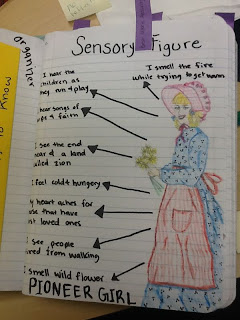 organizer
Know
Sensory Figure
I smell the fire
while trying to get warm
I hear the
children as
run & play
hear songs of
& faith
I see the end
near & a land
called Zion
I feel cold & hungery
heart aches for
those that have
lost loved ones
I see people
tired from walking
smell wild flower
PIONEER GIRL